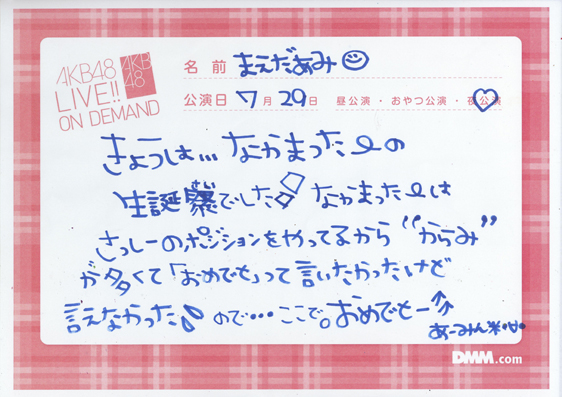 AKB48
LIVE!!
ON DEMAND
AKB
48
名前 まえだあみ
公演日 7月29日 昼公演・おやつ公演・夜公演
きょうは...なかまったんの
生誕祭でした なかまったんは
さっしーのポジションをやってるから“からみ”
が多くて「おめでと」って言いたかったけど
言えなかった♪ ので...ここで。おめでとー↑↑
あーみん
DMM.com